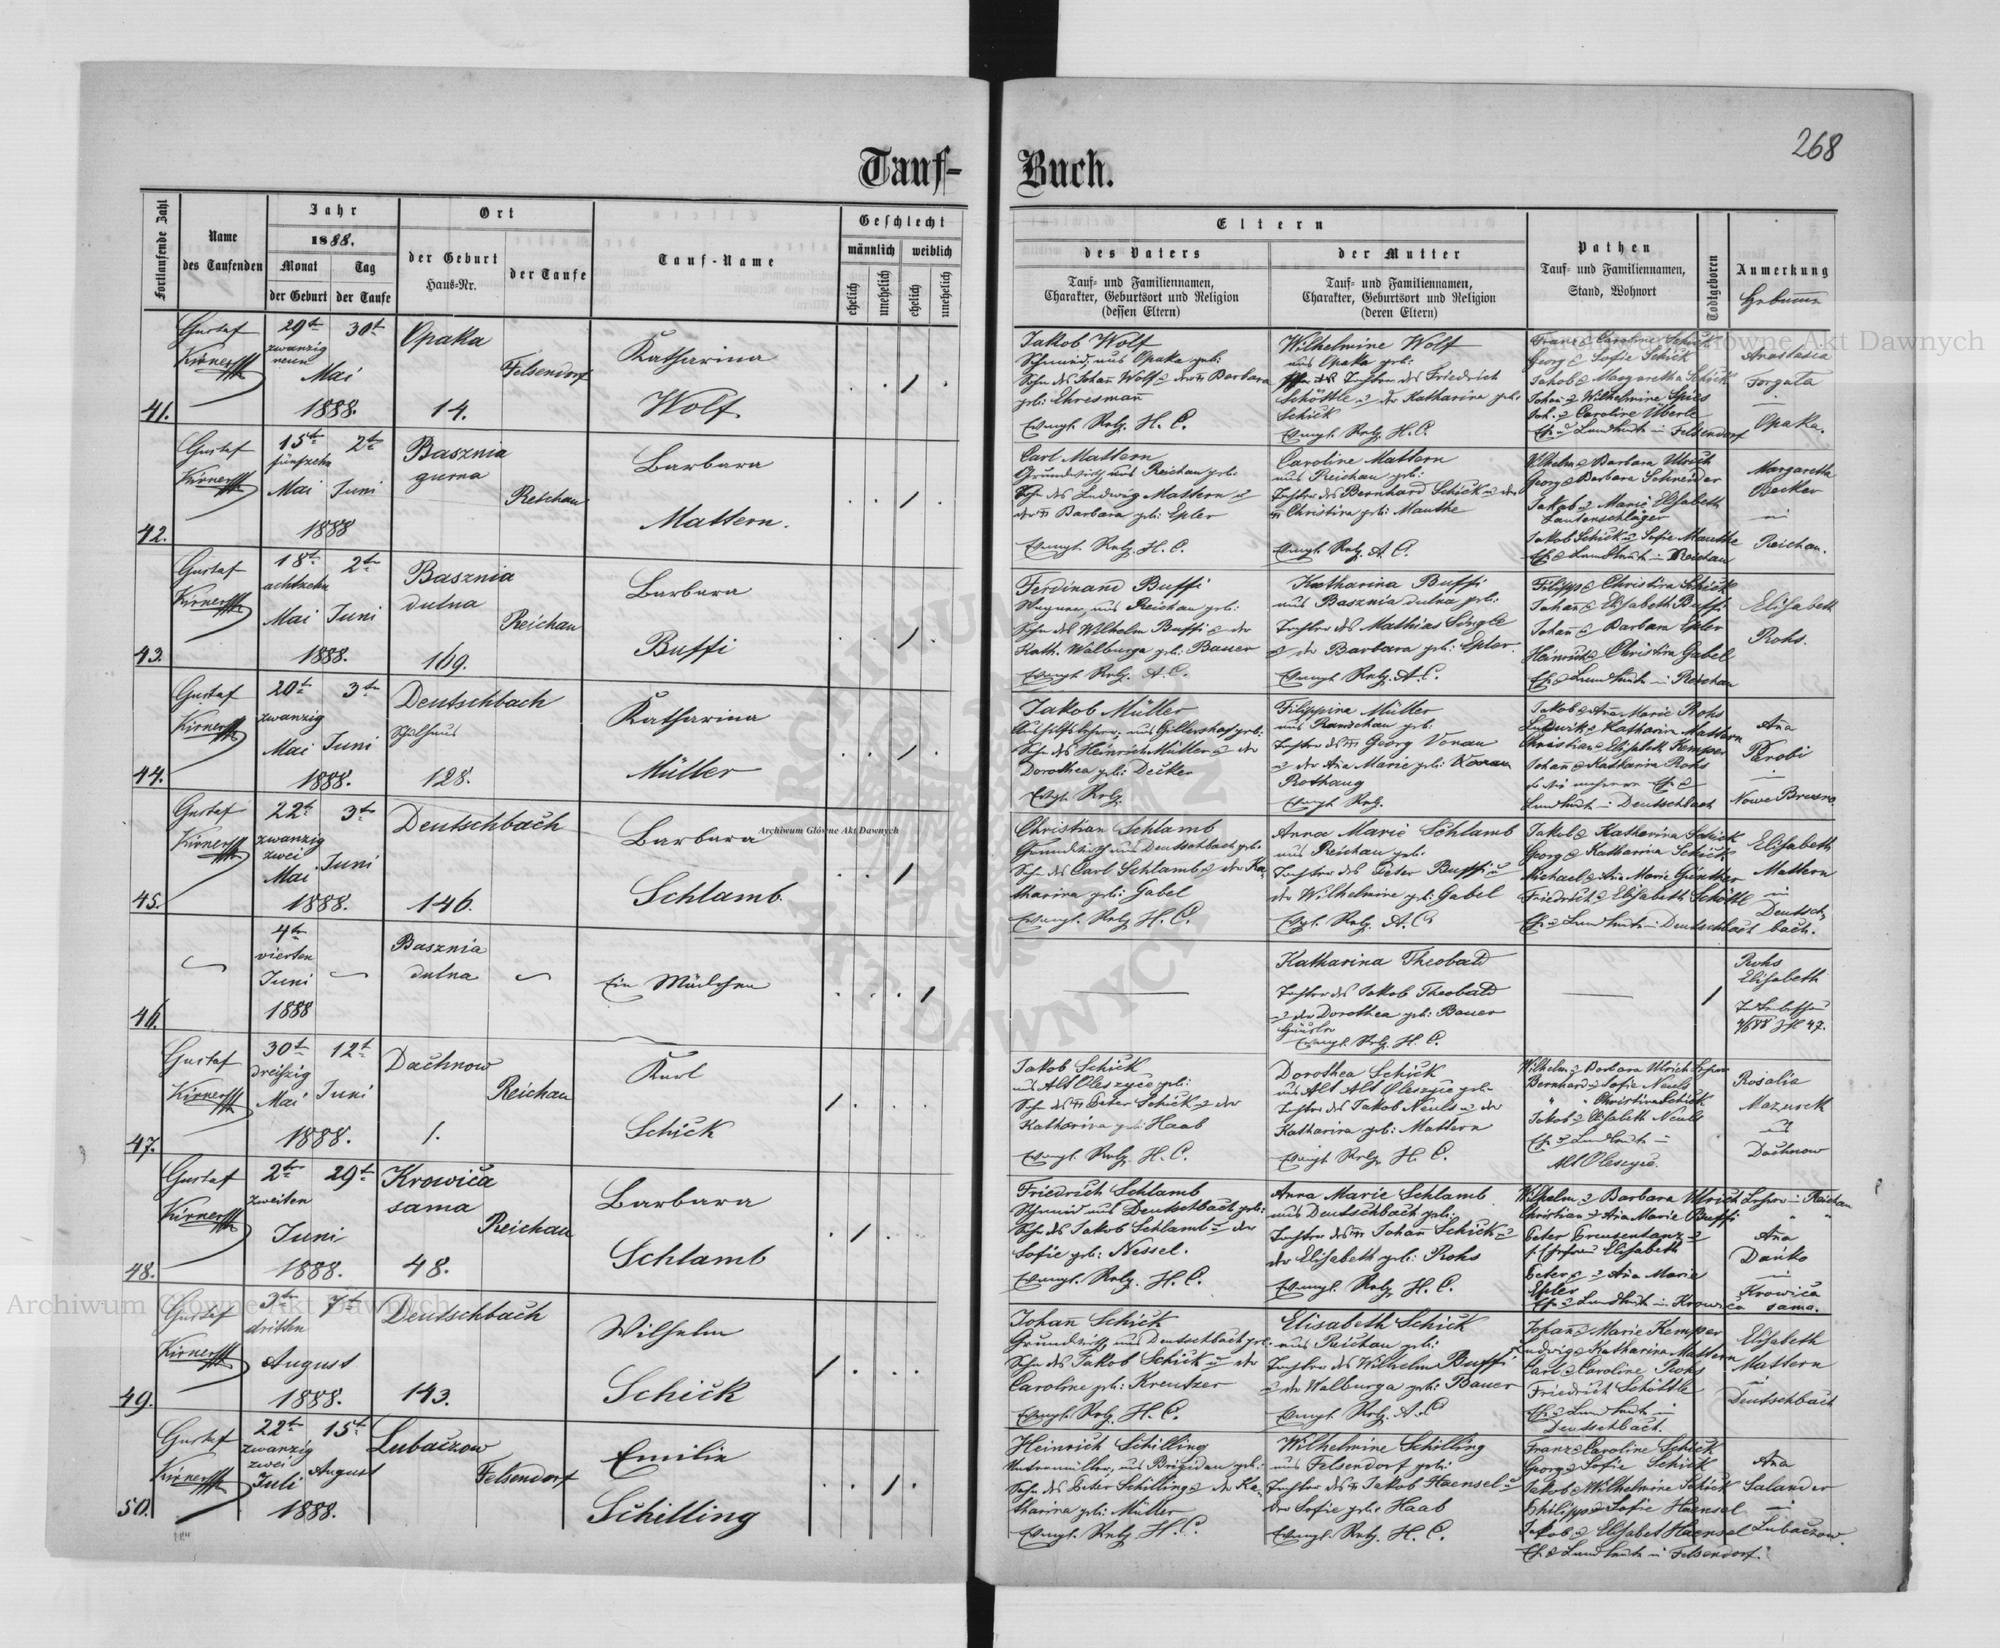 268
Tauf-Buch.
Fortlaufende Zahl
Name des Taufenden
Jahr
1888.
Monat der Geburt
Tag der Taufe
Ort
der Geburt Haus-Nr.
der Taufe
Tauf-Name
Geschlecht
männlich
weiblich
ehelich
unehelich
ehelich
unehelich
Eltern
des Vaters
Tauf- und Familiennamen,
Charakter, Geburtsort und Religion
(dessen Eltern)
der Mutter
Tauf- und Familiennamen,
Charakter, Geburtsort und Religion
(deren Eltern)
Pathen
Tauf- und Familiennamen,
Stand, Wohnort
Todtgeboren
Anmerkung
41.
Gustaf
29t 30t
zwanzig
neun
Mai
1888.
Opaka
14.
Felsendorf
Katharina
Wolf
Jakob Wolf
Schmied, aus Opaka geb:
Sohn des Johañ Wolf u der Barbara
geb: Ehresmañ
Evangl. Relg. H. C.
Wilhelmine Wolf
aus Opaka geb:
Tochter des Friedrich
Schöttle u der Katharina geb:
Schick
Evangl. Relg. H. C.
Franz & Caroline Schick
Georg & Sofie Schick
Jakob & Margaretha Schick
Johañ & Wilhelmine Spies
Joh. & Caroline Überle
in Felsendorf
Anastasia
Opaka.
42.
Gustaf
15t 2t
fünfzehn
Mai Juni
1888
Basznia
gurna
Reichau
Barbara
Mattern.
Carl Mattern
Grundwirth aus Reichau geb:
Sohn des Ludwig Mattern u
der Barbara geb: Epler
Evangl. Relg. H. C.
Caroline Mattern
aus Reichau geb:
Tochter des Bernhard Schick u der
Christina geb: Mauthe
Evangl. Relg. A. C.
Wilhelm & Barbara Ulrich
Georg & Barbara Schneider
Jakob & Marie Elisabeth
Lautenschläger
Jakob Schick & Sofie Mauthe
in Reichau
Margareth
Becker
in
Reichau.
43.
Gustaf
18t 2t
achtzehn
Mai Juni
1888.
Basznia
dulna
169.
Reichau
Barbara
Buffi
Ferdinand Buffi
Wagner, aus Reichau geb:
Sohn des Wilhelm Buffi u der
Kath. Walburga geb: Bauer
Evangl. Relg. A. C.
Katharina Buffi
aus Basznia dulna geb:
Tochter des Mathias
u der Barbara geb: Epler.
Evangl. Relg. A. C.
Filipp & Christina Schick
Johañ & Elisabeth Buffi
Johañ & Barbara Epler
Heinrich & Christina Gabel
in Reichau
Elisabeth
Rohs.
44.
Gustaf
20t 3t
zwanzig
Mai Juni
1888.
Deutschbach
Schulhaus
128.
Katharina
Müller
Jakob Müller
aus Gillershof geb:
Sohn des Heinrich Müller u der
Dorothea geb: Decker
Evgl. Relg.
Filippina Müller
Tochter des Georg Vonau
u der Aña Marie geb:
Rothaug
Evangl. Relg.
Jakob & Aña Marie Rohs
Ludwik & Katharina Mattern
Christian & Elisabeth Kemper
Johañ & Katharina Rohs
in Deutschbach
Aña
in
45.
Gustaf
22t 3t
zwanzig
zwei
Mai Juni
1888.
Deutschbach
146.
Barbara
Schlamb.
Christian Schlamb
Grundwirth aus Deutschbach geb:
Sohn des Carl Schlamb u der Ka-
tharina geb: Gabel
Evangl. Relg. H. C.
Anna Marie Schlamb
aus Reichau geb:
Tochter des Peter Buffi u
der Wilhelmine geb: Gabel
Evgl. Relg. A. C.
Jakob & Katharina Schick
Georg & Katharina Schick
Michael & Aña Marie Günther
Friedrich & Elisabeth Schöttle
in Deutschbach
Elisabeth
Mattern
in
Deutsch-
bach.
46.
4t
vierten
Juni
1888
Basznia
dulna
Ein Mädchen
Katharina Theobald
Tochter des Jakob Theobald
u der Dorothea geb: Bauer
Evangl. Relg. H. C.
Rohs
Elisabeth
47.
Gustaf
30t 12t
dreißig
Mai Juni
1888.
Dachnow
1.
Reichau
Karl
Schick
Jakob Schick
aus Alt Oleszyce geb:
Sohn des Peter Schick u der
Katharina geb: Haab
Evangl. Relg. H. C.
Dorothea Schick
aus Alt Alt Oleszyce geb:
Tochter des Jakob Neuls u der
Katharina geb: Mattern
Evangl. Relg. H. C.
Wilhelm & Barbara Ulrich Lehrer
Bernhard & Sofie Neuls
" " Christina Schick
Jakob & Elisabeth Neuls
Alt Oleszyce.
Rosalie
Mazurek
Dachnow
48.
Gustaf
2t 29t
zweiten
Juni
1888.
Krowica
sama
48.
Reichau
Barbara
Schlamb
Friedrich Schlamb
Schmied aus Deutschbach geb:
Sohn des Jakob Schlamb u der
Sofie geb: Nessel.
Evangl. Relg. H. C.
Anna Marie Schlamb
aus Deutschbach geb:
Tochter des Johan Schick u
der Elisabeth geb: Rohs
Evangl. Relg. H. C.
Wilhelm & Barbara Ulrich Lehrer in Reichau
Christian & Aña Marie Buffi " "
Elisabeth
Peter & Aña Marie
Epler
in Krowica
Aña
Dańko
in
Krowica
sama.
49.
Gustaf
3t 7t
dritten
August
1888.
Deutschbach
143.
Wilhelm
Schick
Johan Schick
Grundwirth aus Deutschbach geb:
Sohn des Jakob Schick u der
Caroline geb: Kreutzer
Evangl. Relg. H. C.
Elisabeth Schick
aus Reichau geb:
Tochter des Wilhelm Buffi
u der Walburga geb: Bauer
Evangl. Relg. A. C.
Johañ & Marie Kemper
Ludwig & Katharina Mattern
Carl & Caroline Rohs
Friedrich Schöttle
in
Deutschbach.
Elisabeth
Mattern
in
Deutschbach
50.
Gustaf
22t 15t
zwanzig
zwei
Juli August
1888.
Lubaczow
Felsendorf
Emilie
Schilling
Heinrich Schilling
aus Brigidau geb:
Sohn des Peter Schilling u der Ka-
tharina geb: Müller
Evangl. Relg. H. C.
Wilhelmine Schilling
aus Felsendorf geb:
Tochter des Jakob Haensel u
der Sofie geb: Haab
Evangl. Relg. H. C.
Franz & Caroline Schick
Georg & Sofie Schick
Jakob & Wilhelmine Schick
Philipp & Sofie Haensel
Jakob & Elisabet Haensel
in Felsendorf.
Aña
Salander
in
Lubaczow.
Archiwum Główne Akt Dawnych
Archiwum Główne Akt Dawnych
Archiwum Główne Akt Dawnych